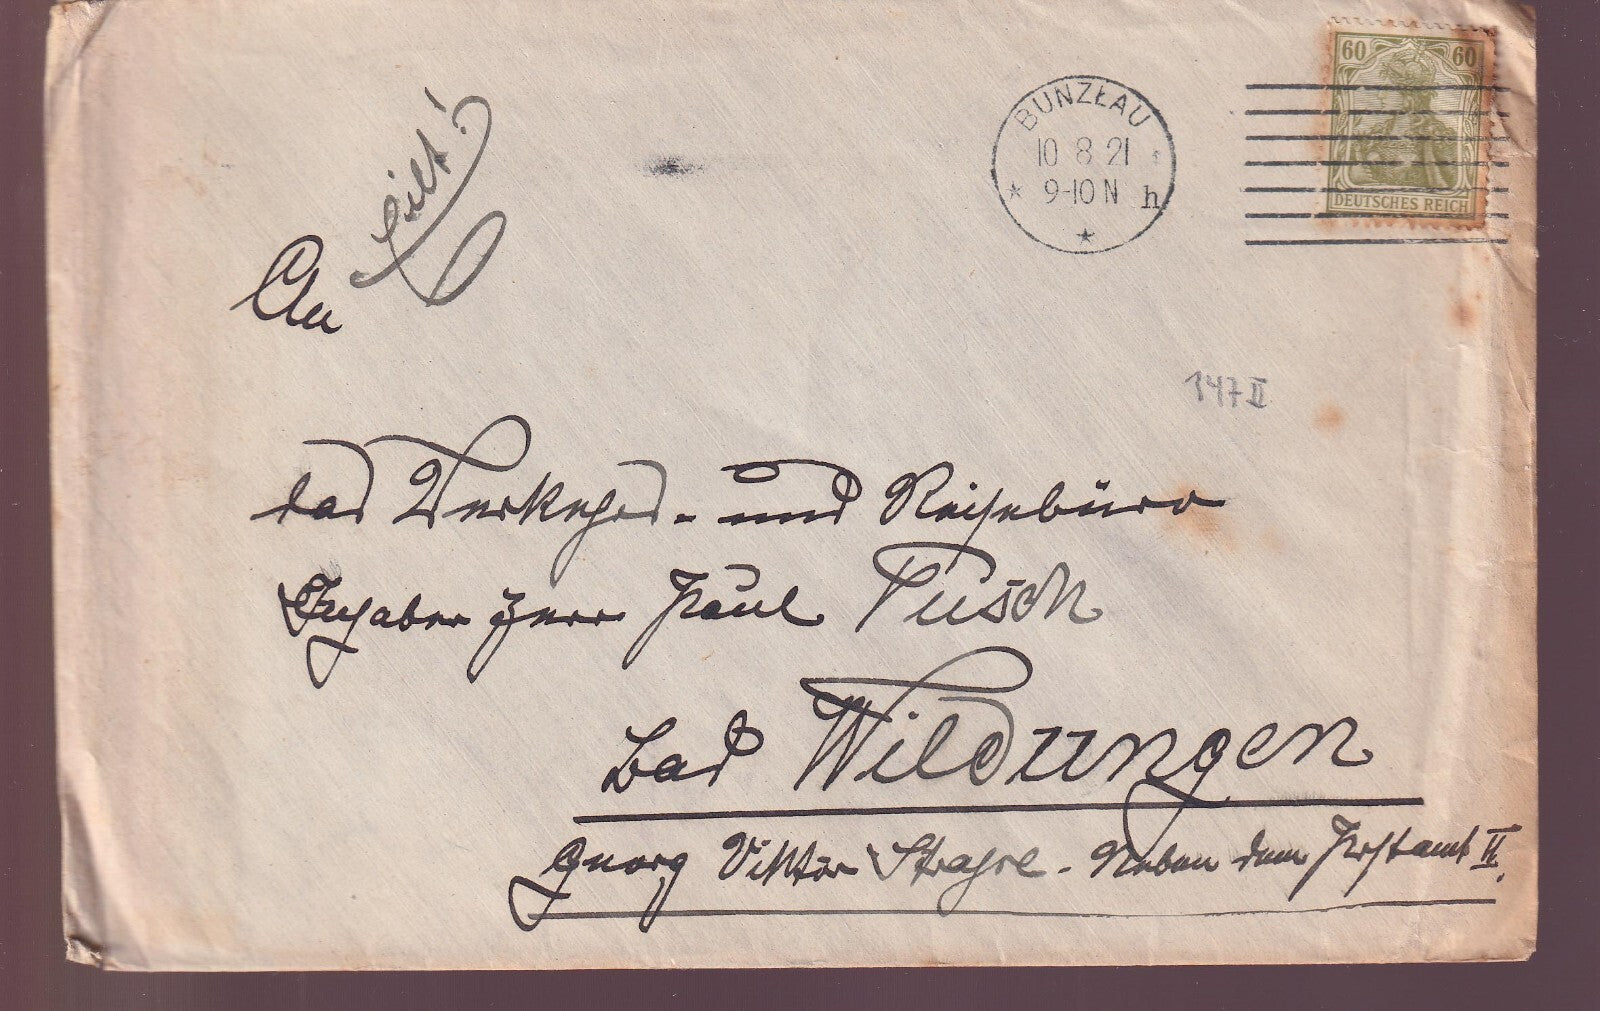 60 60
DEUTSCHES REICH
BUNZŁAU
10 8 21
9-10 N h
eilt!
An
147 II
das Verkehrs- und Reisebüro
Inhaber Herr Paul Pusch
Bad Wildungen
Georg Viktor Strasse - Neben dem Postamt II.